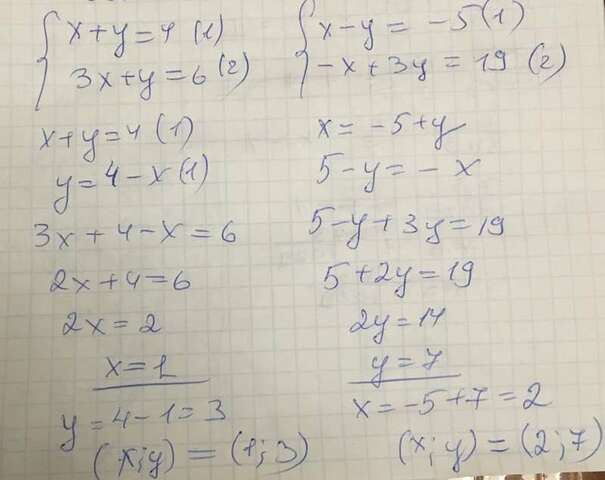 x+y=4 (1)
3x+y=6 (2)
x+y=4 (1)
y=4-x (1)
3x+4-x=6
2x+4=6
2x=2
x=1
y=4-1=3
(x;y)=(1;3)
x-y=-5 (1)
-x+3y=19 (2)
x=-5+y
5-y=-x
5-y+3y=19
5+2y=19
2y=14
y=7
x=-5+7=2
(x;y)=(2;7)